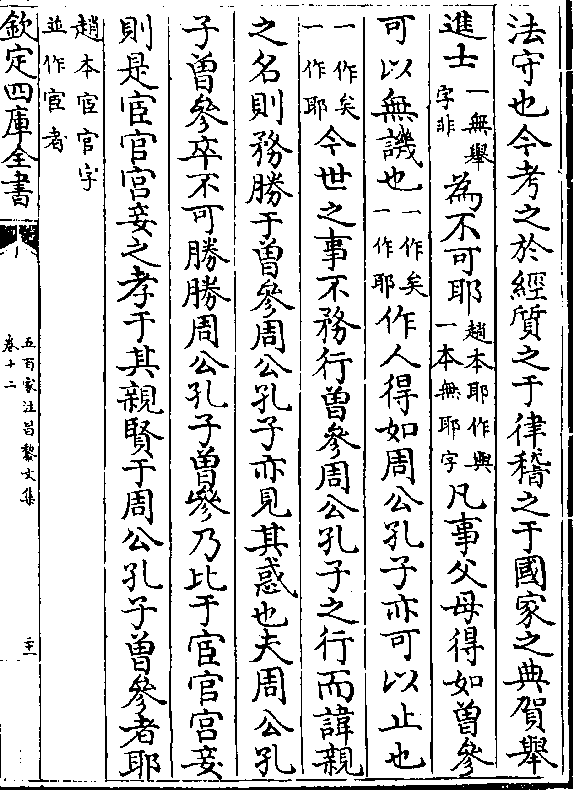 法守也今考之於經質之于律稽之于國家之典賀舉
進士一無舉字非為不可耶趙本耶作與一本無耶字凡事父母得如曾參
可以無譏也一作矣一作耶作人得如周公孔子亦可以止也
一作矣一作耶今世之事不務行曾參周公孔子之行而諱親
之名則務勝于曾參周公孔子亦見其惑也夫周公孔
子曾參卒不可勝勝周公孔子曾參乃比于宦官宮妾
則是宦官宮妾之孝于其親賢于周公孔子曾參者耶
趙本宦官字並作宦者
欽定四庫全書
五百家注昌黎文集
卷十二